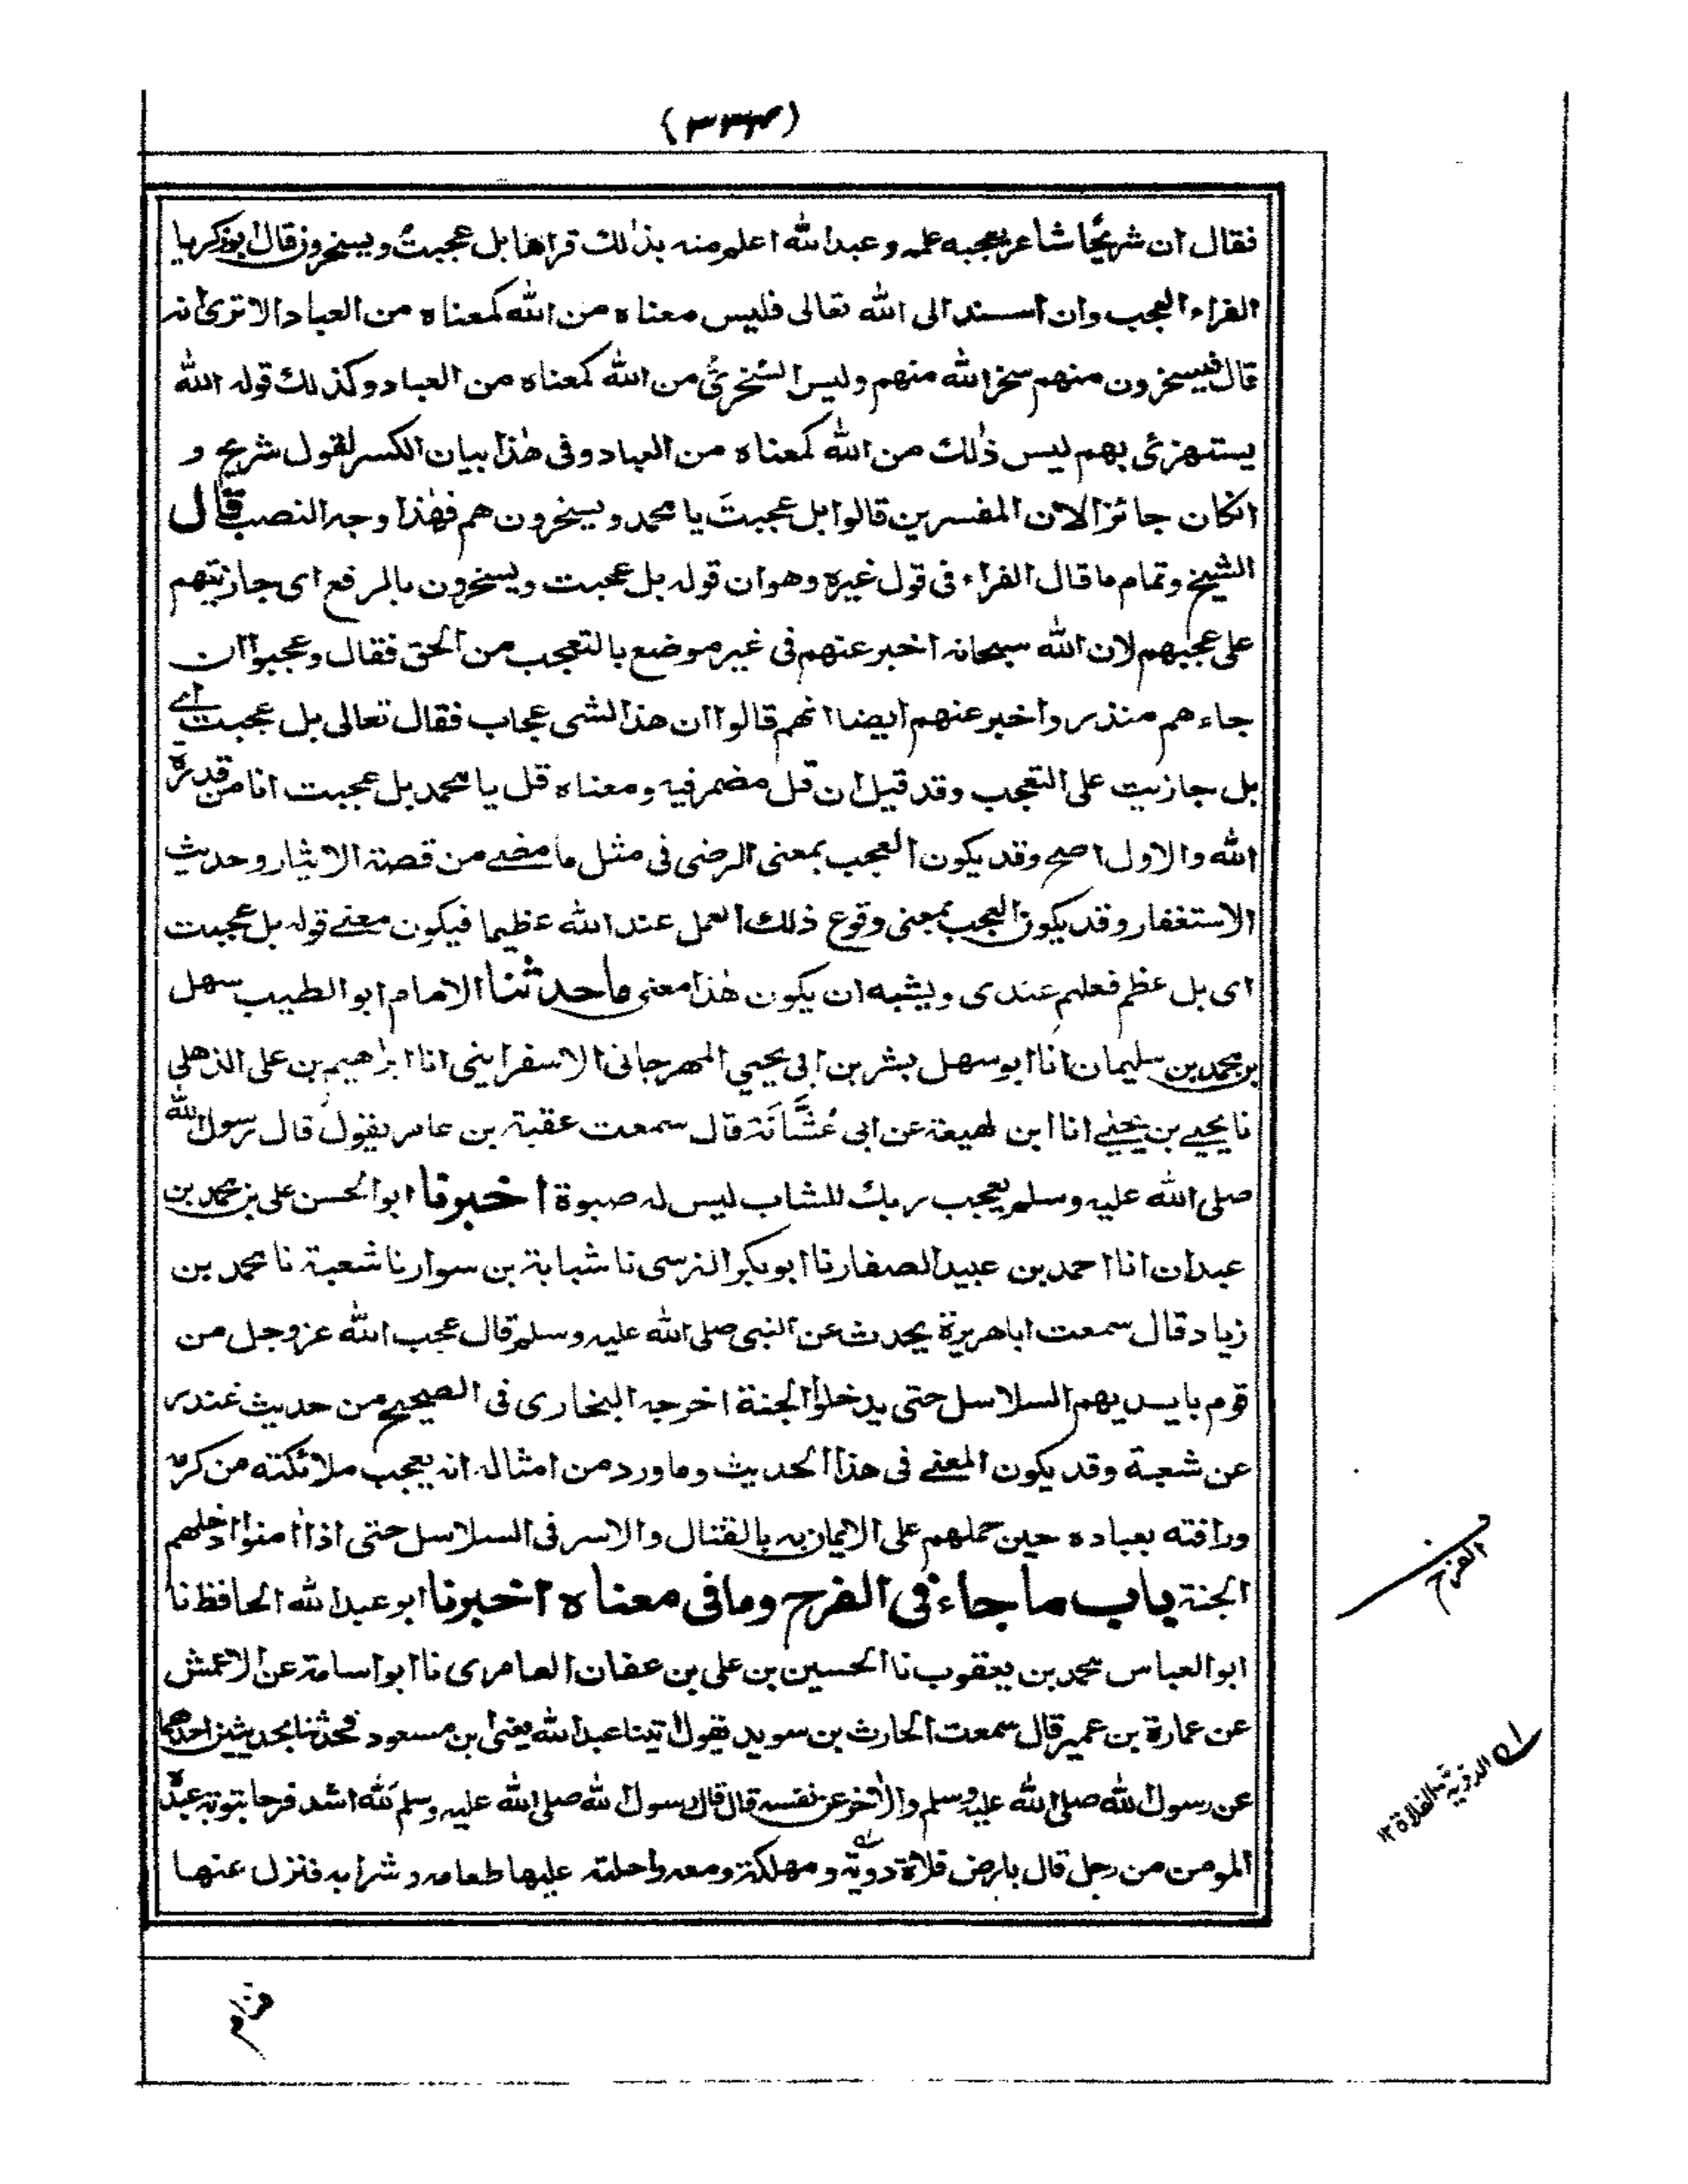 فقال ان شريحًا شاعر يعجبه علمه وعبد الله اعلم منه بذلك قراها بل عجبتُ ويسخرون قال ابو زكريا
الفراء العجب وان اسند الى الله تعالى فليس معناه من الله كمعناه من العباد الا ترى انه
قال فيسخرون منهم سخر الله منهم وليس السُّخرىُّ من الله كمعناه من العباد وكذلك قوله الله
يستهزئ بهم ليس ذٰلك من الله كمعناه من العباد وفى هٰذا بيان الكسر لقول شريح و
انكان جائزا لان المفسرين قالوا بل عجبتَ يا محمد ويسخرون هم فهٰذا وجه النصب قال
الشيخ وتمام ما قال الفراء فى قول غيره وهو ان قوله بل عجبت ويسخرون بالرفع اى جازيتهم
على عجبهم لان الله سبحانه اخبر عنهم فى غير موضع بالتعجب من الحق فقال وعجبوا ان
جاءهم منذر واخبر عنهم ايضا انهم قالوا ان هذا لشى عجاب فقال تعالى بل عجبت اے
بل جازيت على التعجب وقد قيل ان قل مضمر فيه ومعناه قل يا محمد بل عجبت انا من قدرة
الله والاول اصح وقد يكون العجب بمعنى الرضى فى مثل ما مضے من قصة الايثار وحديث
الاستغفار وقد يكون العجب بمعنى وقوع ذلك العمل عند الله عظيما فيكون معنے قوله بل عجبت
اى بل عظم فعلهم عندى ويشبه ان يكون هٰذا معنى ما حدثنا الامام ابو الطيب سهل
بن محمد بن سليمان انا ابو سهل بشر بن ابى يحيي المهرجانى الاسفراينى انا ابراهيم بن على الذهلى
نا يحيے بن يحيے انا ابن لهيعة عن ابى عُشَّانَة قال سمعت عقبة بن عامر يقول قال رسول الله
صلى الله عليه وسلم يعجب ربك للشاب ليس له صبوة اخبرنا ابو الحسن على بن محمد بن
عبدان انا احمد بن عبيد الصفار نا ابو بكر النرسى نا شبابة بن سوار نا شعبة نا محمد بن
زياد قال سمعت ابا هريرة يحدث عن النبى صلى الله عليه وسلم قال عجب الله عز وجل من
قوم بايديهم السلاسل حتى يدخلوا الجنة اخرجه البخارى فى الصحيح من حديث غندر
عن شعبة وقد يكون المعنے فى هذا الحديث وما ورد من امثاله انه يعجب ملائكته من كرمه
ورافته بعباده حين حملهم على الايمان به بالقتال والاسر فى السلاسل حتى اذا اٰمنوا ادخلهم
الجنة باب ما جاء فى الفرح وما فى معناه اخبرنا ابو عبد الله الحافظ نا
ابو العباس محمد بن يعقوب نا الحسين بن على بن عفان العامرى نا ابو اسامة عن الاعمش
عن عمارة بن عمير قال سمعت الحارث بن سويد يقول اتينا عبد الله يعنى ابن مسعود فحدثنا بحديثين احدهما
عن رسول الله صلى الله عليه وسلم والاٰخر عن نفسه قال قال رسول الله صلى الله عليه وسلم لَلّٰه اشد فرحا بتوبة عبده
المومن من رجل قال بارض فلاة دوية ومهلكة ومعه راحلته عليها طعامه وشرابه فنزل عنها
الفرح
الدوية الفلاة ١٢